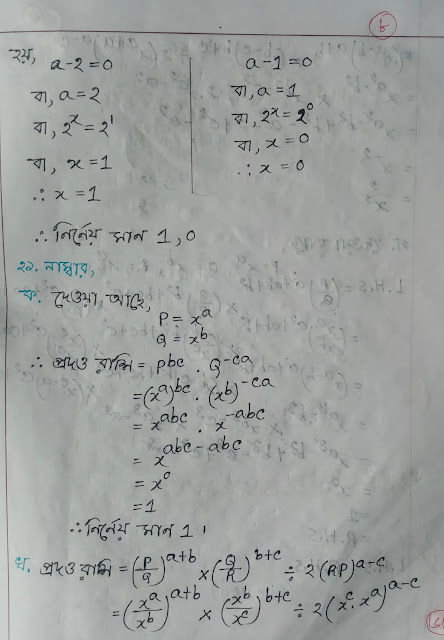 ৮
হয়, a-2=0
বা, a=2
বা, 2^x=2^1
বা, x=1
∴ x=1
a-1=0
বা, a=1
বা, 2^x=2^0
বা, x=0
∴ x=0
∴ নির্নেয় মান 1,0
২২. নাম্বার,
ক. দেওয়া আছে,
P = x^a
Q = x^b
∴ প্রদত্ত রাশি = P^bc · Q^-ca
=(x^a)^bc · (x^b)^-ca
= x^abc · x^-abc
= x^abc-abc
= x^0
=1
∴ নির্নেয় মান 1।
খ. প্রদত্ত রাশি = (P/Q)^a+b × (Q/R)^b+c ÷ 2(RP)^a-c
= (x^a/x^b)^a+b × (x^b/x^c)^b+c ÷ 2(x^c·x^a)^a-c